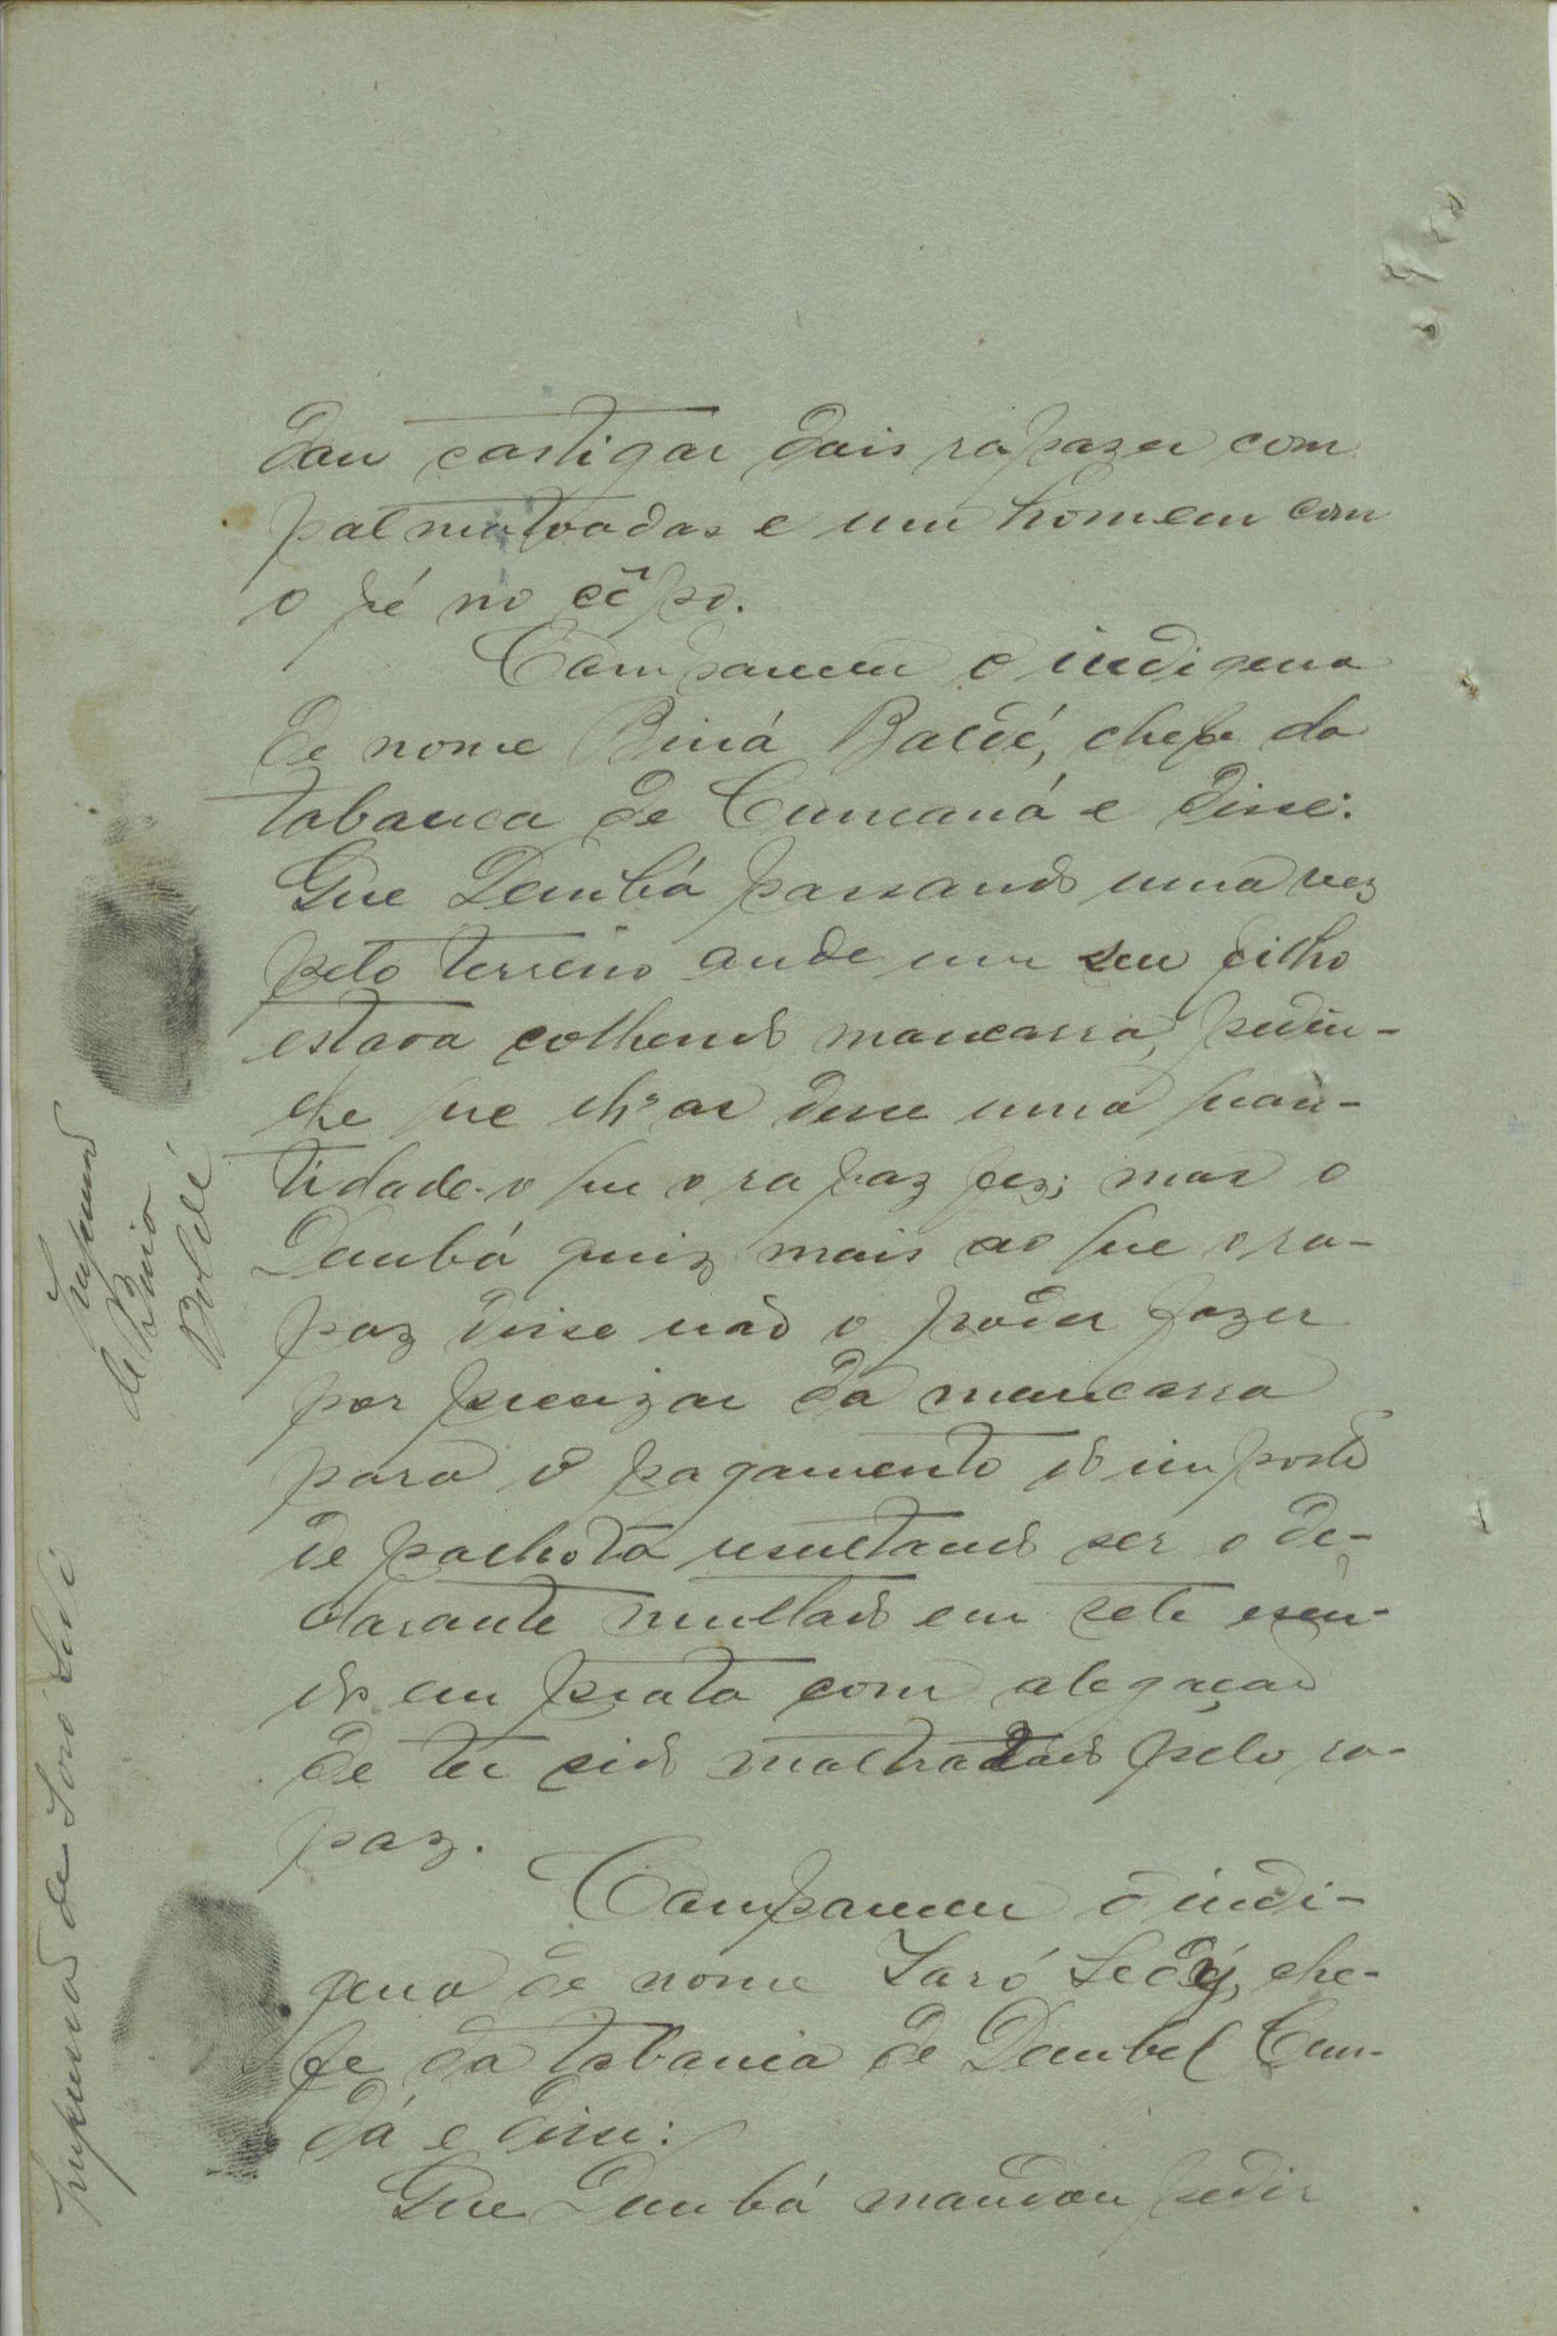 dou castigar dois rapazes com
palmatoadas e um homem com
o pé no cêpo.
Compareceu o indigena
de nome Biná Baldé, chefe da
tabanca de Cumcaná e disse:
Que Dembá passando uma vez
pelo terreno onde um seu filho
estava colhendo mancarra, pediu-
lhe que lh'as desse uma quan-
tidade o que o rapaz fez; mas o
Dembá quiz mais ao que o ra-
paz disse não o poder fazer
por precizar da mancarra
para o pagamento do imposto
de palhota resultando ser o de-
clarante multado em sete escu-
dos em prata com alegação
de ter sido maltratado pelo ra-
paz.
Compareceu o indi-
gena de nome Saró Sedy, che-
fe da tabanca de Dembel Cun-
dá e disse:
Que Dembá mandou pedir
Impressão
de Biná
Baldé
Impressão de Soró